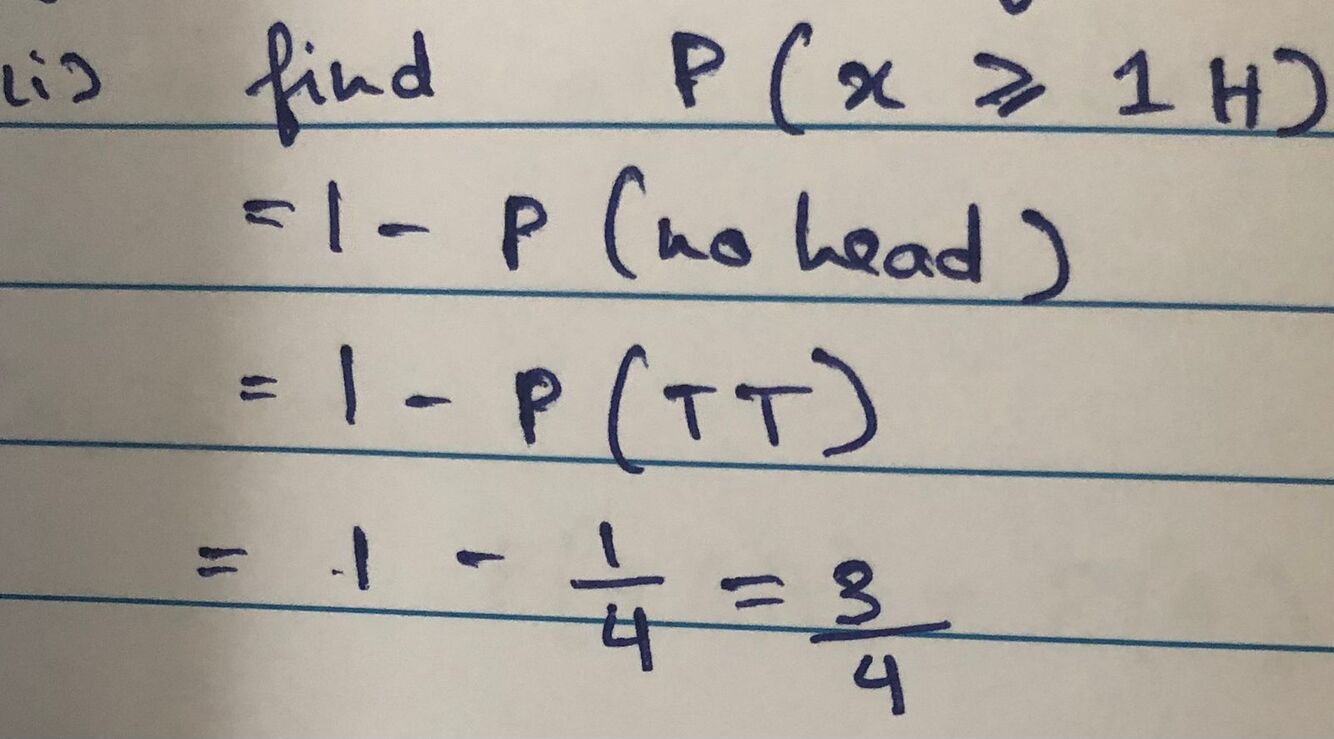 (i) find P(x ⩾ 1H)
= 1 - P(no head)
= 1 - P(TT)
= 1 - 1/4 = 3/4